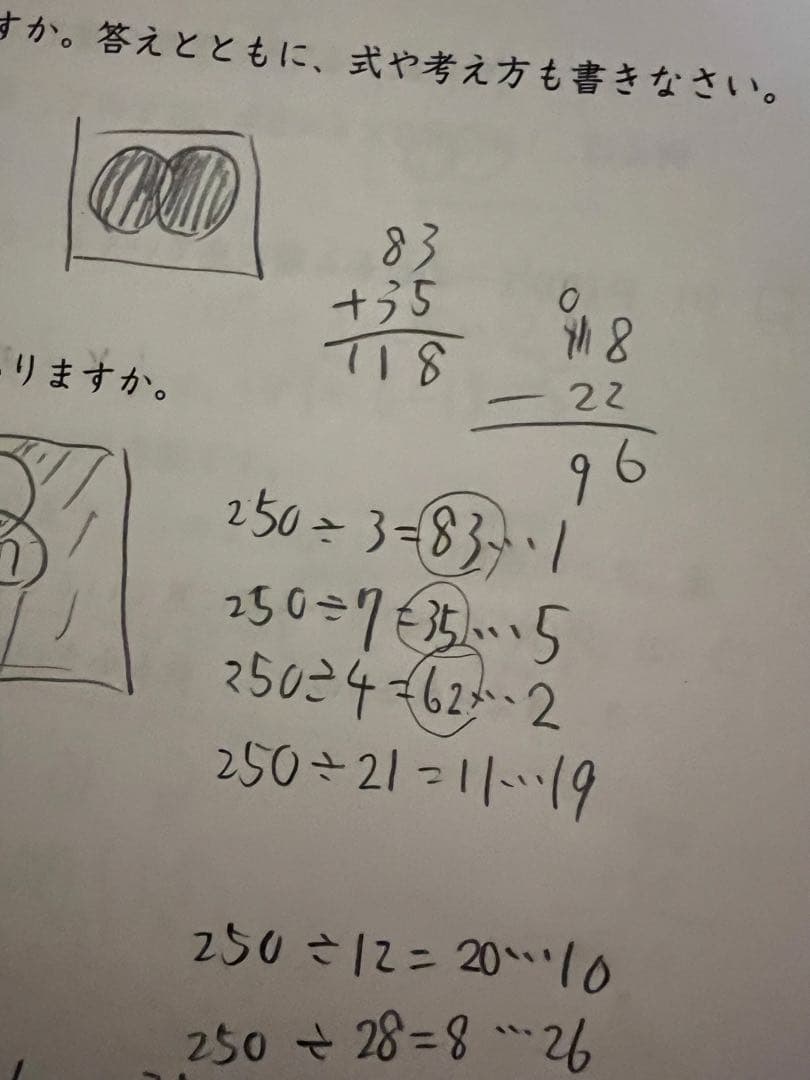 すか。答えとともに、式や考え方も書きなさい。
83
+35
118
0
118
-22
96
りますか。
7
250÷3=83…1
250÷7=35…5
250÷4=62…2
250÷21=11…19
250÷12=20…10
250÷28=8…26